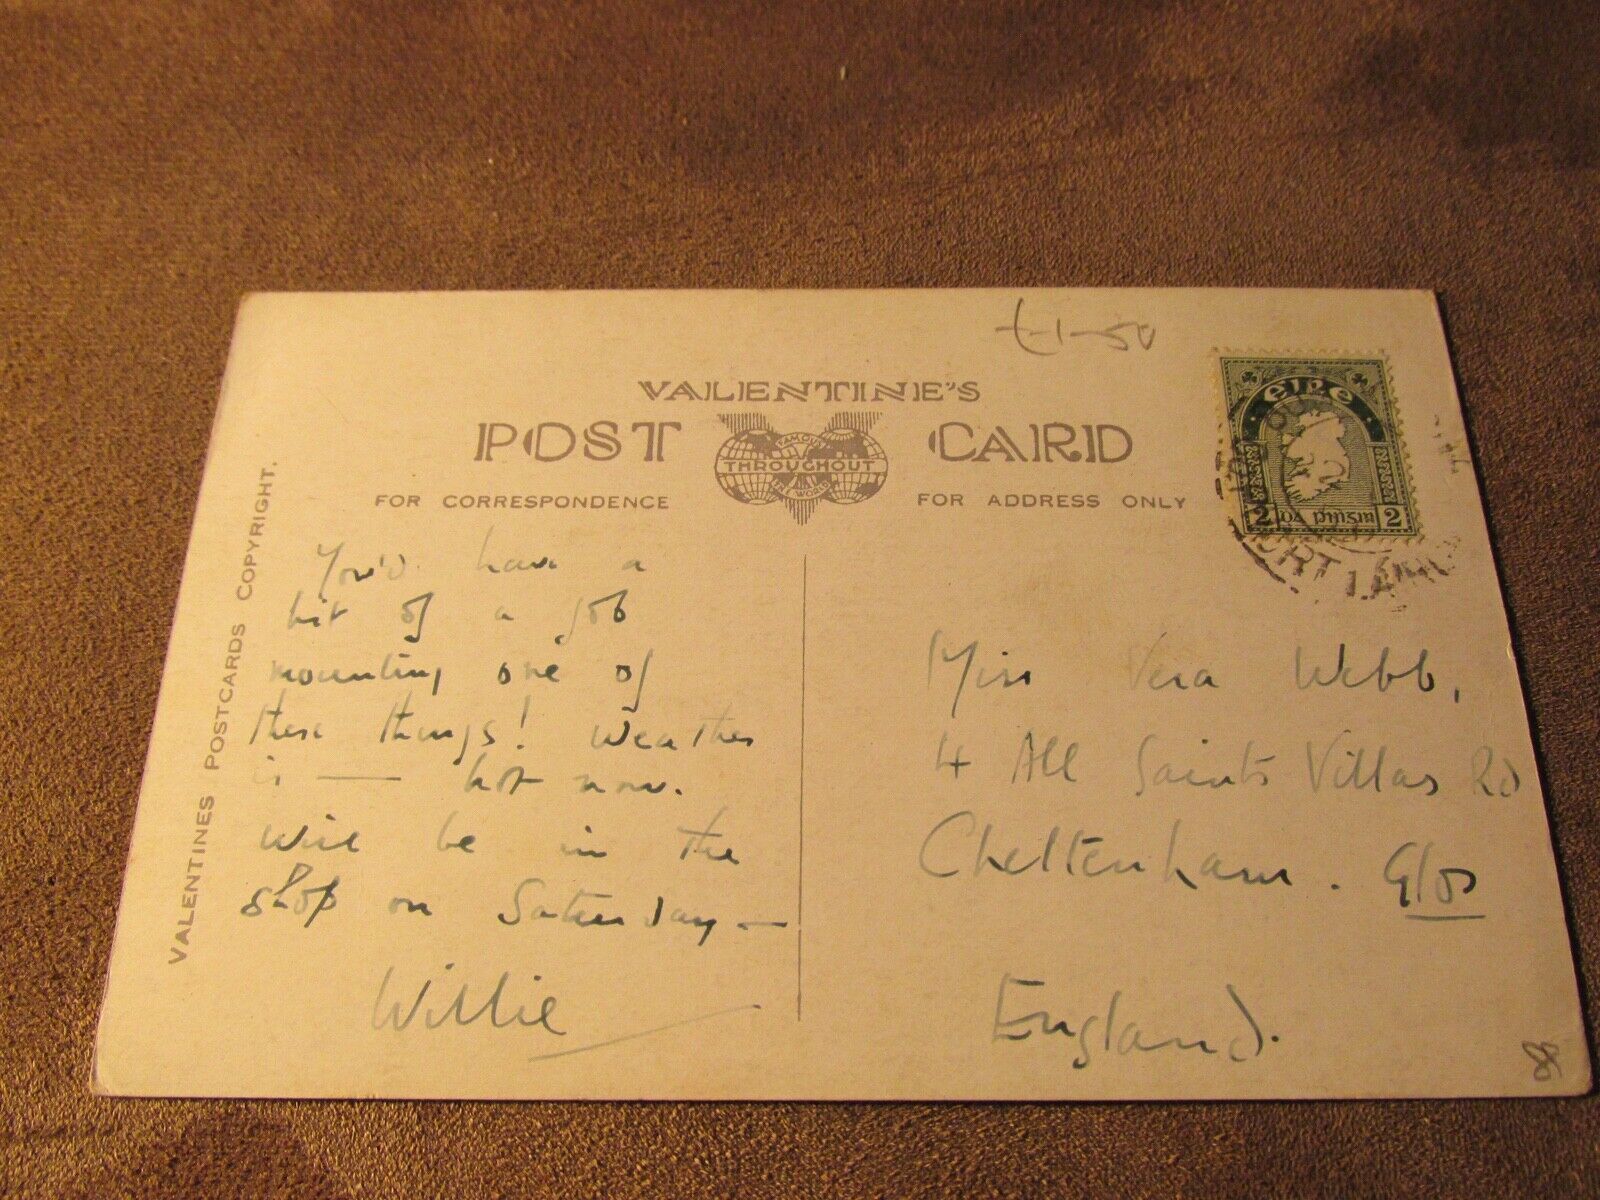 £1-50
VALENTINE'S
POST CARD
FAMOUS
THROUGHOUT
THE WORLD
FOR CORRESPONDENCE
FOR ADDRESS ONLY
VALENTINES POSTCARDS COPYRIGHT.
éire
2 dá pinġin 2
PORT LAIRGE
You'd have a
bit of a job
mounting one of
these things! Weather
is — hot now.
Will be in the
shop on Saturday —
Willie
Miss Vera Webb,
4 All Saints Villas Rd
Cheltenham. Glos
England.